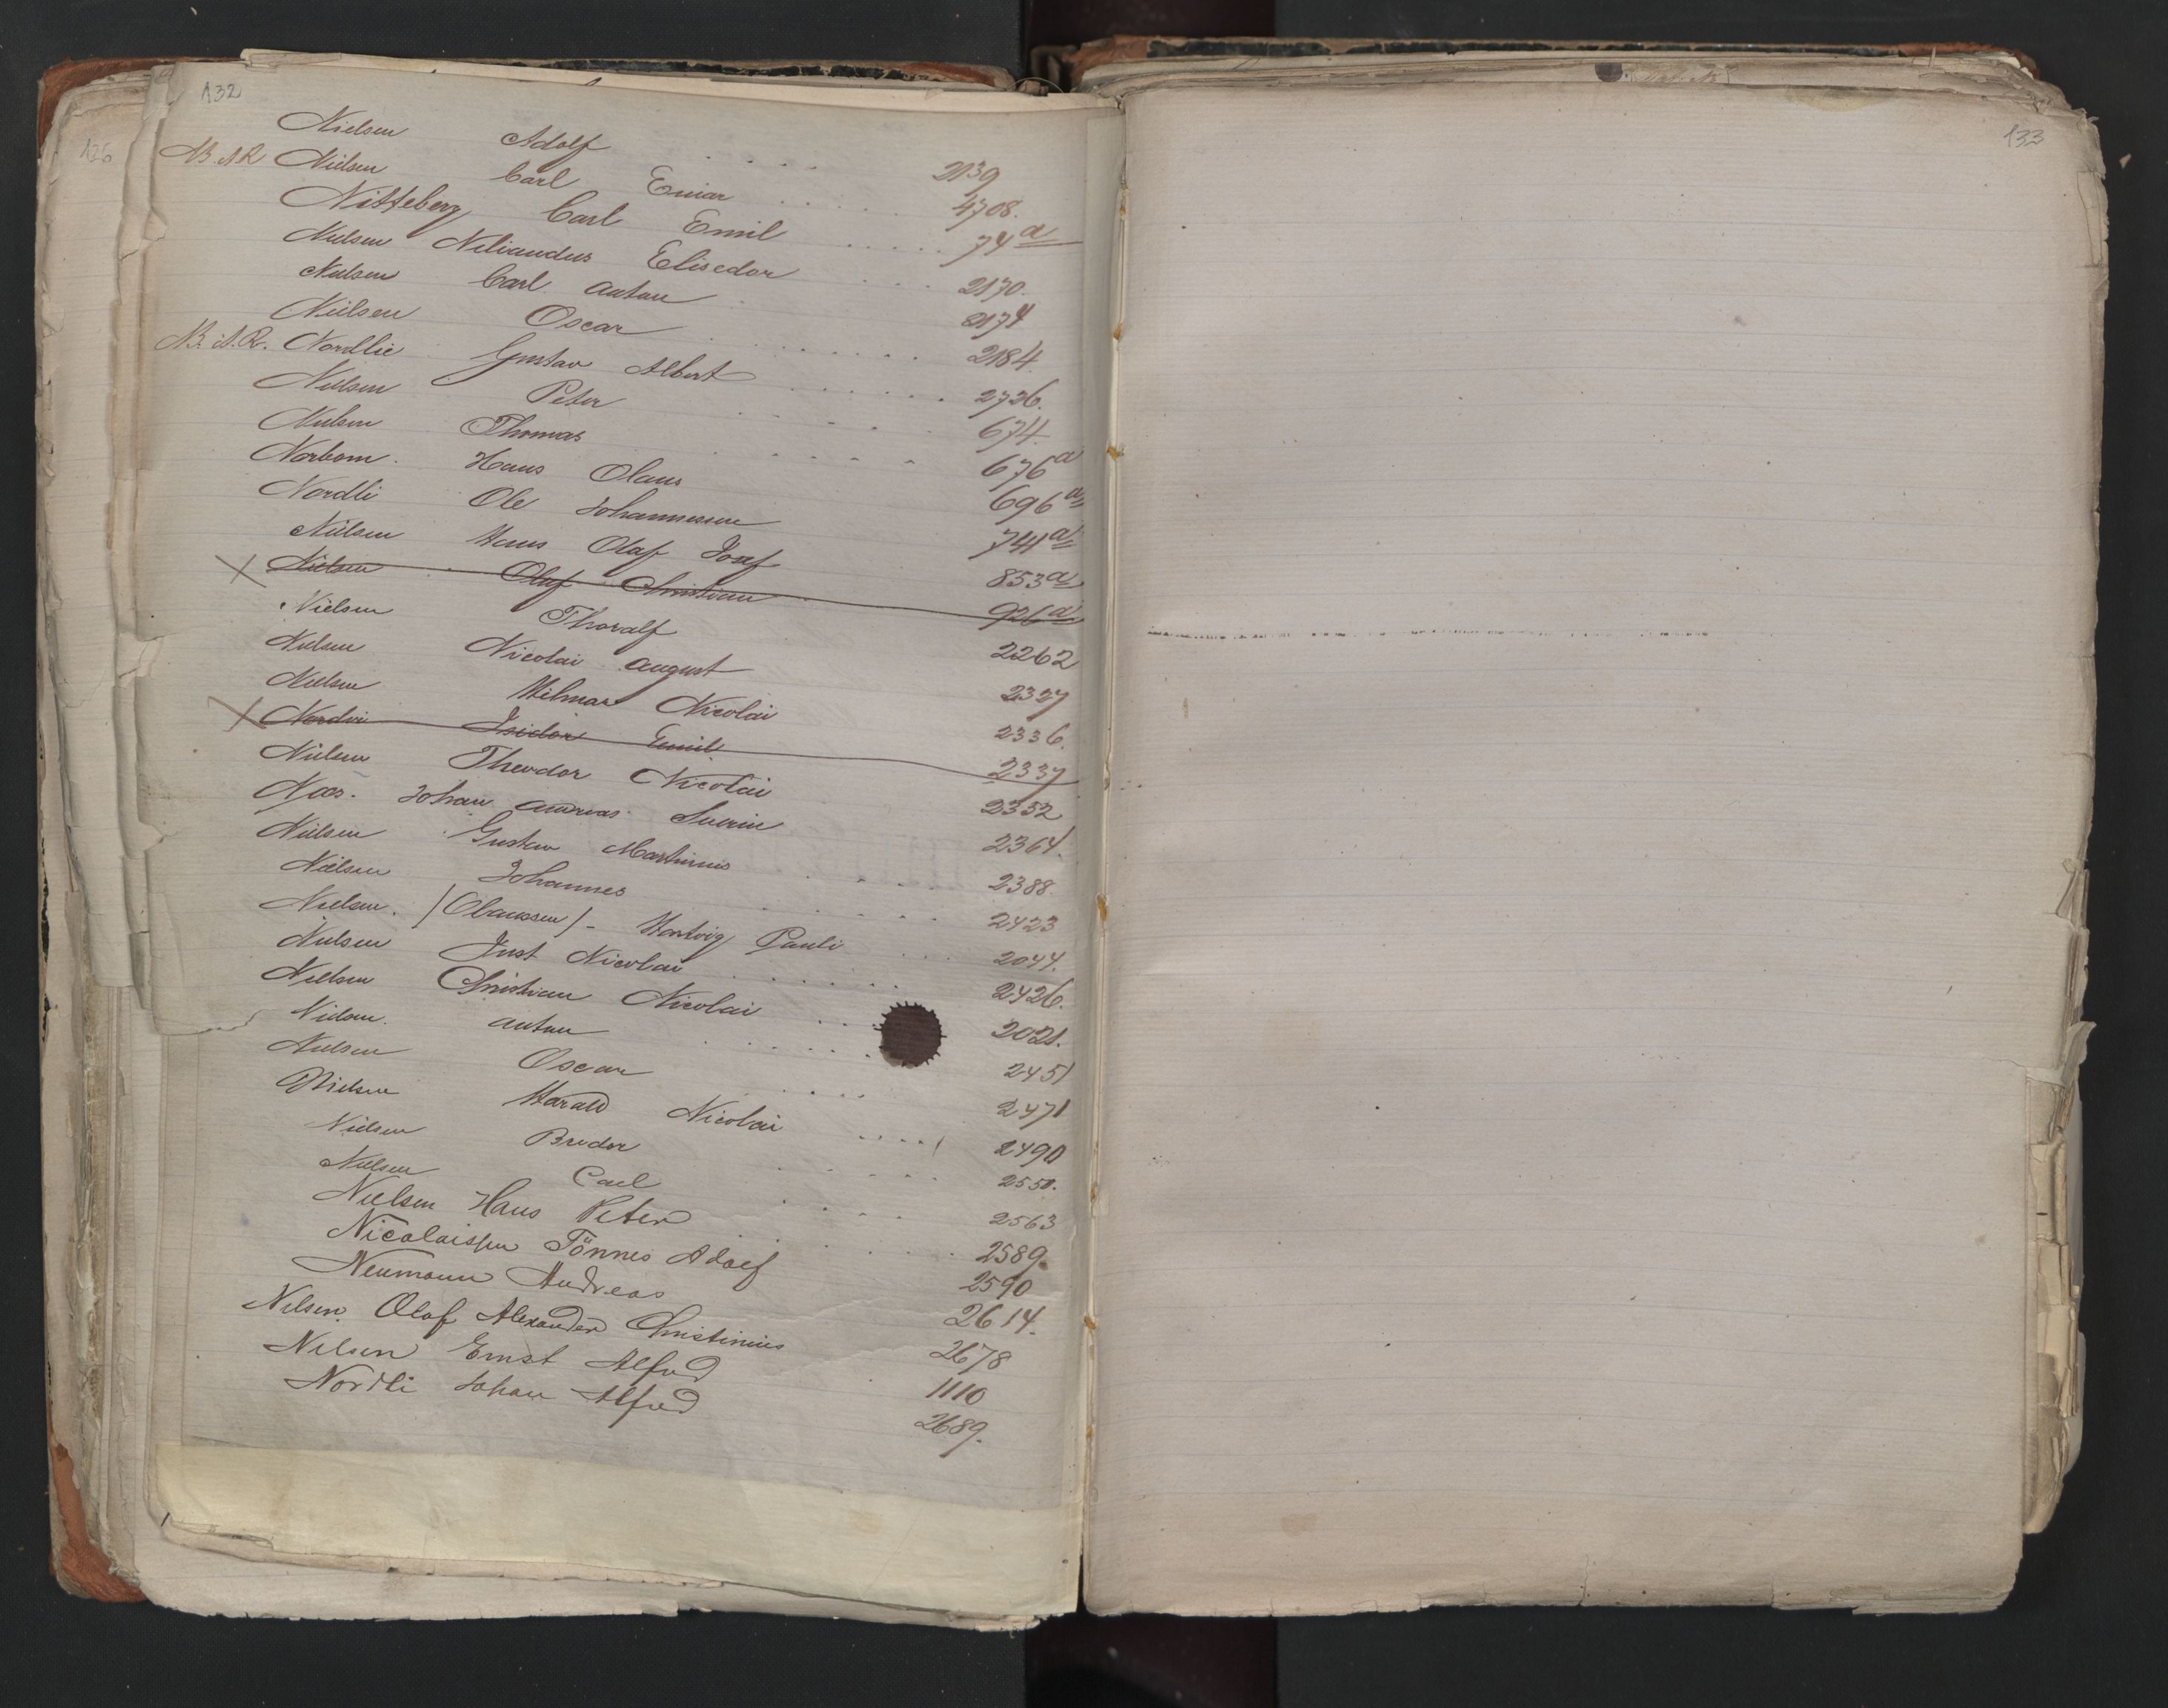 132
Nielsen Adolf 2139
N.A.R Nielsen Carl Einar 4708.
Nitteberg Carl Emil 74 a
Nielsen Niliandus Elisedor 2170.
Nielsen Carl Anton 2174
Nielsen Oscar 2184
N.A.R. Nordlie Gustav Albert 2726.
Nielsen Peter 674.
Nielsen Thomas 676 a
Norbom. Hans Olaus 696 a
Nordli Ole Johannessen 741 a
Nielsen Hans Olaf Josef 853 a
X Nielsen Olaf Christian 926 a
Nielsen Thoralf 2262
Nielsen Nicolai August 2327
Nielsen Hilmar Nicolai 2336.
X Nordvi Isidor Emil 2337
Nielsen Theodor Nicolai 2352
Næs. Johan Andreas Severin 2364.
Nielsen Gustav Martinius 2388.
Nielsen Johannes 2423
Nielsen. /Olaussen/ - Hartvig Pauli 2044.
Nielsen Just Nicolai 2426.
Nielsen Christian Nicolai 2021.
Nielsen. Anton 2451
Nielsen Oscar 2471
Nielsen Harald Nicolai 2490
Nielsen Bredor 2550.
Nielsen Carl 2563
Nielsen Hans Peter 2589.
Nicolaissen Tönnes Adolf 2590
Neumann Andreas 2614.
Nilsen. Olaf Alexander Christinius 2678
Nilsen Ernst Alfred 1110
Nordli Johan Alfred 2689.
133